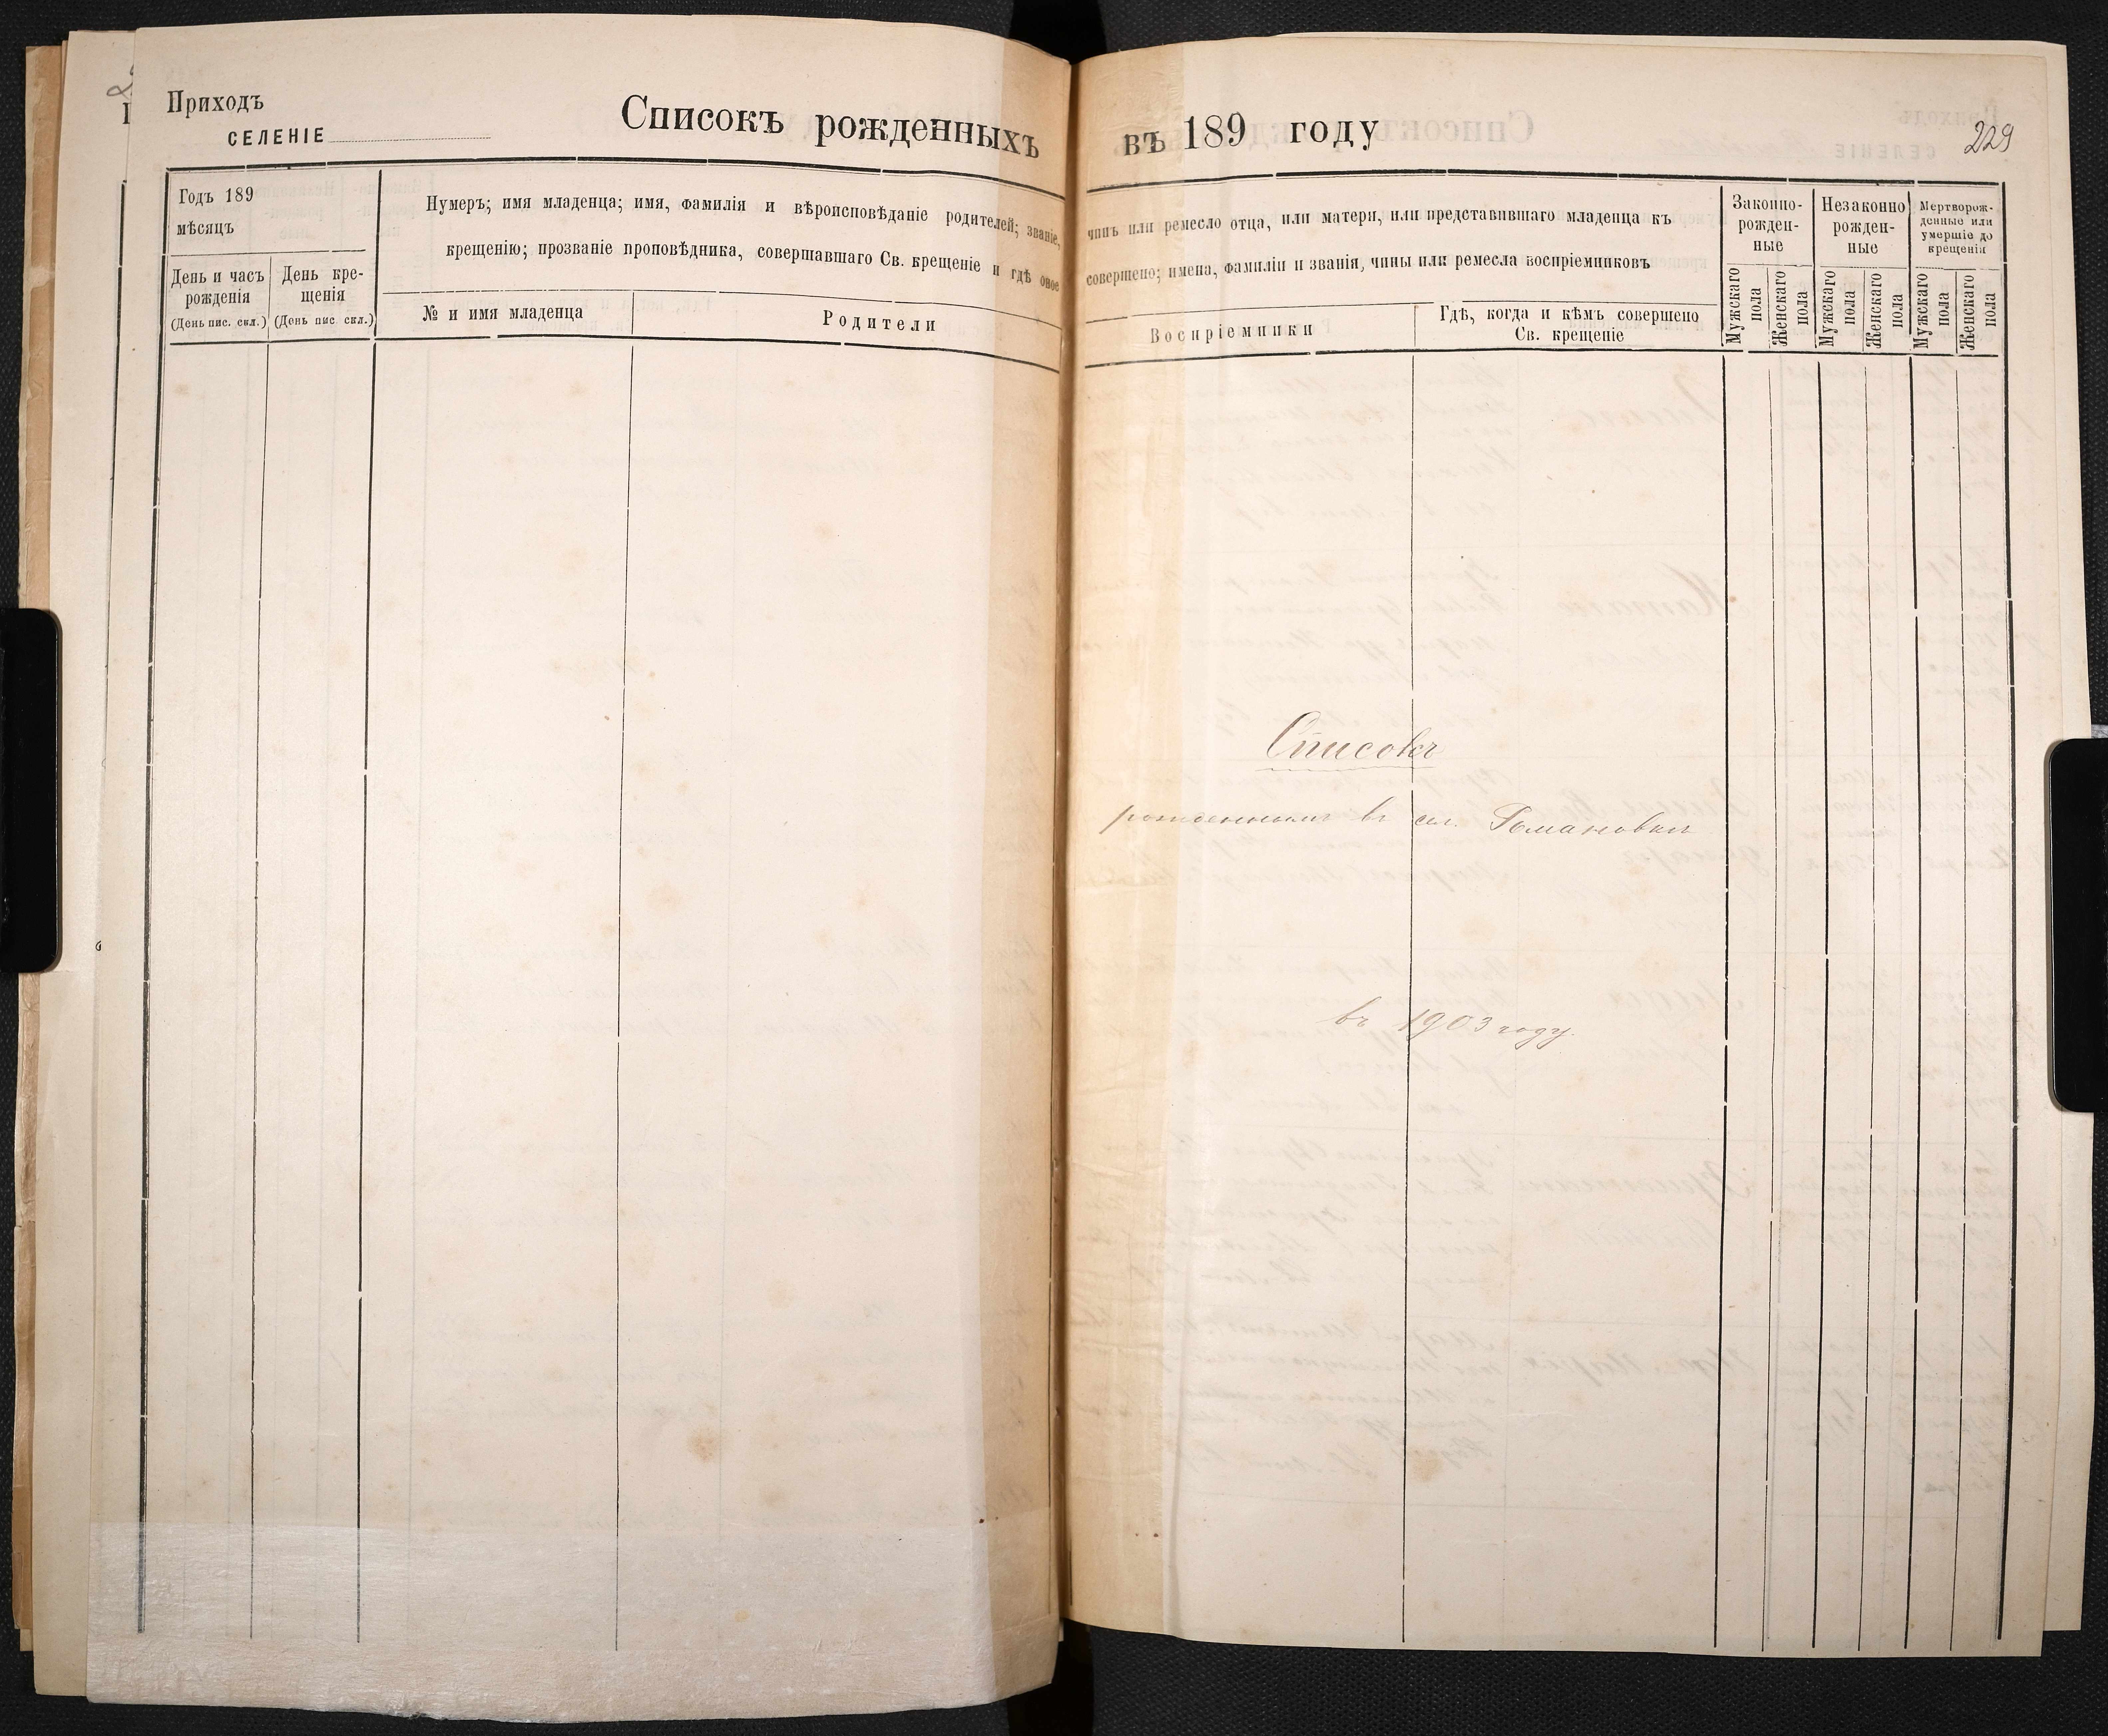 Приходъ
СЕЛЕНІЕ
Списокъ рожденныхъ
Годъ 189
мѣсяцъ
День и часъ рожденія
(День пис. скл.)
День кре-
щенія
(День пис. скл.)
Нумеръ; имя младенца; имя, фамилія и вѣроисповѣданіе родителей; званіе,
крещенію; прозваніе проповѣдника, совершавшаго Св. крещеніе и гдѣ оное
№ и имя младенца
Родители
въ 189 году
229
чинъ или ремесло отца, или матери, или представившаго младенца къ
совершено; имена, фамиліи и званія, чины или ремесла воспріемниковъ
Воспріемники
Гдѣ, когда и кѣмъ совершено
Св. крещеніе
Законно-
рожден-
ные
Незаконно
рожден-
ные
Мертворож-
денные или
умершіе до
крещенія
Мужскаго пола
Женскаго пола
Мужскаго пола
Женскаго пола
Мужскаго пола
Женскаго пола
Списокъ
рожденныхъ въ сел. Романовкѣ
въ 1903 году.